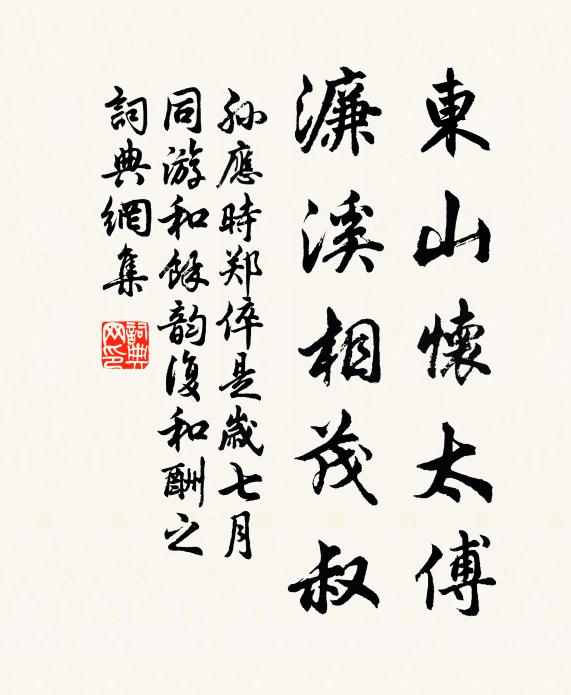 東山懷太傅
濂溪相茂叔
孙應時郑倅是歲七月
同游和餘韵復和酬之
詞典網集
詞典網印